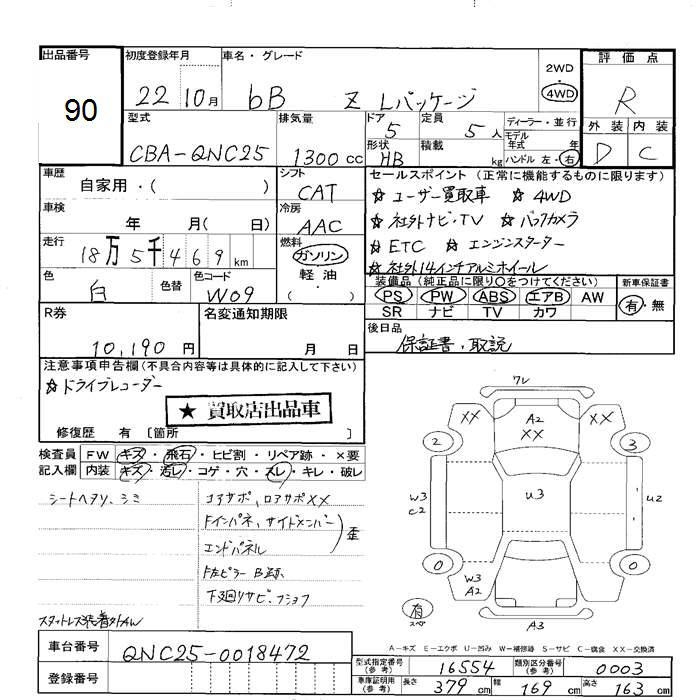 出品番号 90
初度登録年月 22 10月
車名・グレード bB Z Lパッケージ
2WD
4WD
評価点 R
外装 D 内装 C
型式 CBA-QNC25
排気量 1300cc
ドア 5
形状 HB
定員 5人
積載 kg
ディーラー・並行
モデル
年式 年
ハンドル 左・右
車歴 自家用・( )
シフト CAT
車検 年 月( 日)
冷房 AAC
走行 18万5千469km
燃料 ガソリン
軽油
・( )
色 白
色替
色コード W09
セールスポイント(正常に機能するものに限ります)
☆ユーザー買取車 ☆4WD
☆社外ナビ・TV ☆バックカメラ
☆ETC ☆エンジンスターター
☆社外14インチアルミホイール
装備品(純正品に限り○をつけてください)
PS PW ABS エアB AW
SR ナビ TV カワ
新車保証書 有・無
R券 10,190円
名変通知期限 月 日
後日品 保証書、取説
注意事項申告欄(不具合内容等は具体的に記入して下さい)
☆ドライブレコーダー
★買取店出品車
修復歴 有〔箇所 〕
検査員 FW キズ・飛石・ヒビ割・リペア跡・×要
記入欄 内装 キズ・汚レ・コゲ・穴・スレ・キレ・破レ
シートヘタリ、シミ
コアサポ、ロアサポXX
Fインパネ、サイドメンバー
エンドパネル
歪
F左ピラー B跡
下廻りサビ、
スタットレス装着
7レ
XX
A2
XX
XX
2
3
W3
C2
U3
U2
0
0
W3
A2
有
スペ
A3
A-キズ E-エクボ U-凹み W-補修跡 S-サビ C-腐食 XX-交換済
車台番号 QNC25-0018472
登録番号
型式指定番号(参考) 16554
類別区分番号(参考) 0003
車庫証明用(参考) 長さ 379cm 幅 169cm 高さ 163cm